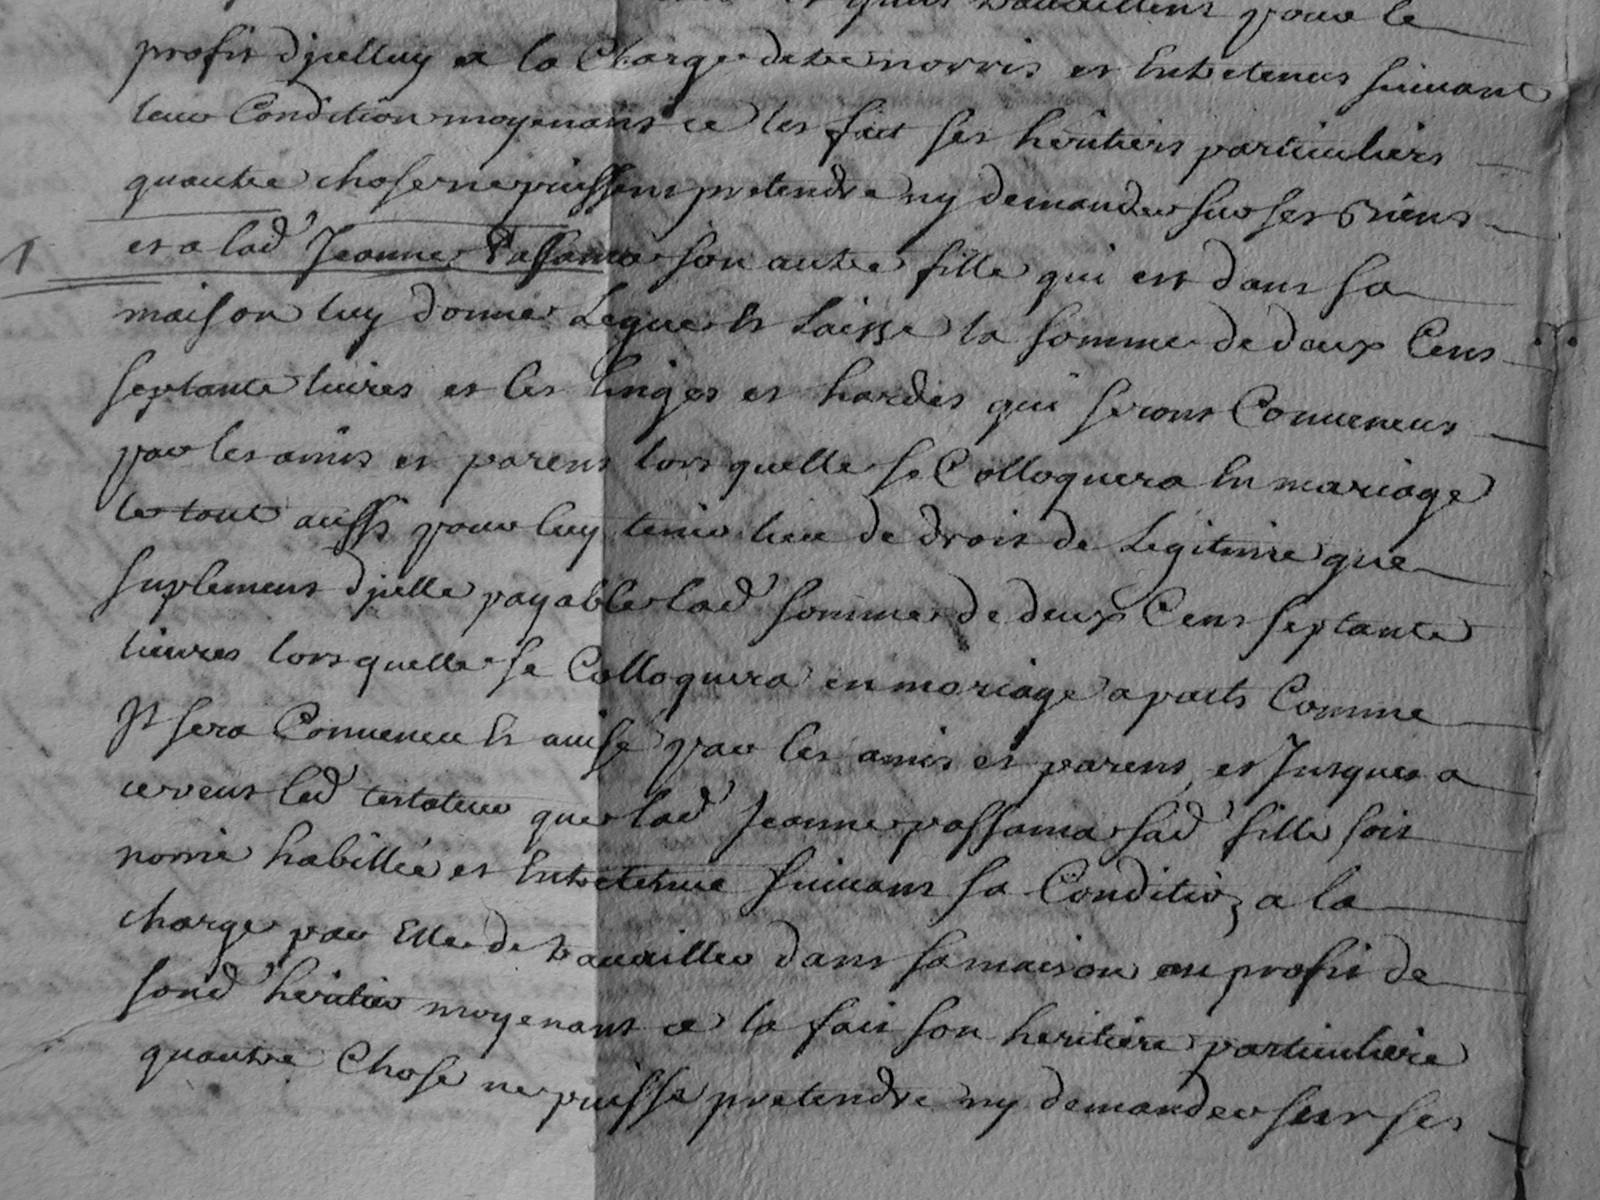 travaillent pour le
profit d'jcelluy a la Charge detre norris et Entretenus suivant
leur Condition moyenant ce les fait ses heritiers particuliers
quautre chose ne puissent pretendre ny demander sur ses Biens
et a lad' Jeanne Passama son autre fille qui est dans sa
maison luy donne Legue Et Laisse la somme de deux Cens
septante livres et les linges et hardes qui seront Conveneus
par les amis et parens lors quelle se Colloquera En mariage
le tout aussy pour luy tenir lieu de droit de Legitime que
suplement d'jcelle payable lad' somme de deux Cens septante
livres lors quelle se Colloquera en mariage a pacts Comme
Jl sera Conveneu Et avisé par les amis et parens, et Jusques a
ce veut led' testateur que lad' Jeanne passama sad' fille soit
norrie habillée et Entretenue suivant sa Condition a la
charge par Elle de travailler dans sa maison au profit de
sond' heritier moyenant ce la fait son heritiere particuliere
quautre Chose ne puisse pretendre ny demander sur ses